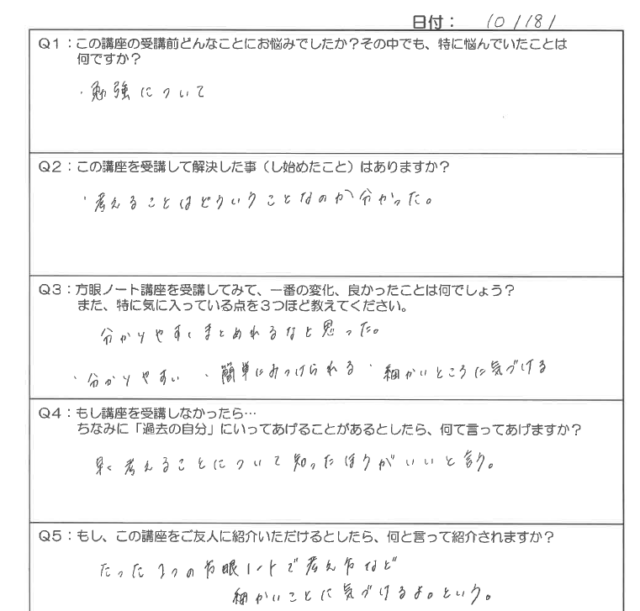 日付： 10/18/
Q1：この講座の受講前どんなことにお悩みでしたか？その中でも、特に悩んでいたことは
何ですか？
・勉強について
Q2：この講座を受講して解決した事（し始めたこと）はありますか？
・考えることはどういうことなのか分かった。
Q3：方眼ノート講座を受講してみて、一番の変化、良かったことは何でしょう？
また、特に気に入っている点を３つほど教えてください。
分かりやすくまとめれるなと思った。
・分かりやすい ・簡単にみつけられる ・細かいところに気づける
Q4：もし講座を受講しなかったら…
ちなみに「過去の自分」にいってあげることがあるとしたら、何て言ってあげますか？
早く考えることについて知ったほうがいいと言う。
Q5：もし、この講座をご友人に紹介いただけるとしたら、何と言って紹介されますか？
たった1つの方眼ノートで考え方など
細かいことに気づけるよ。という。